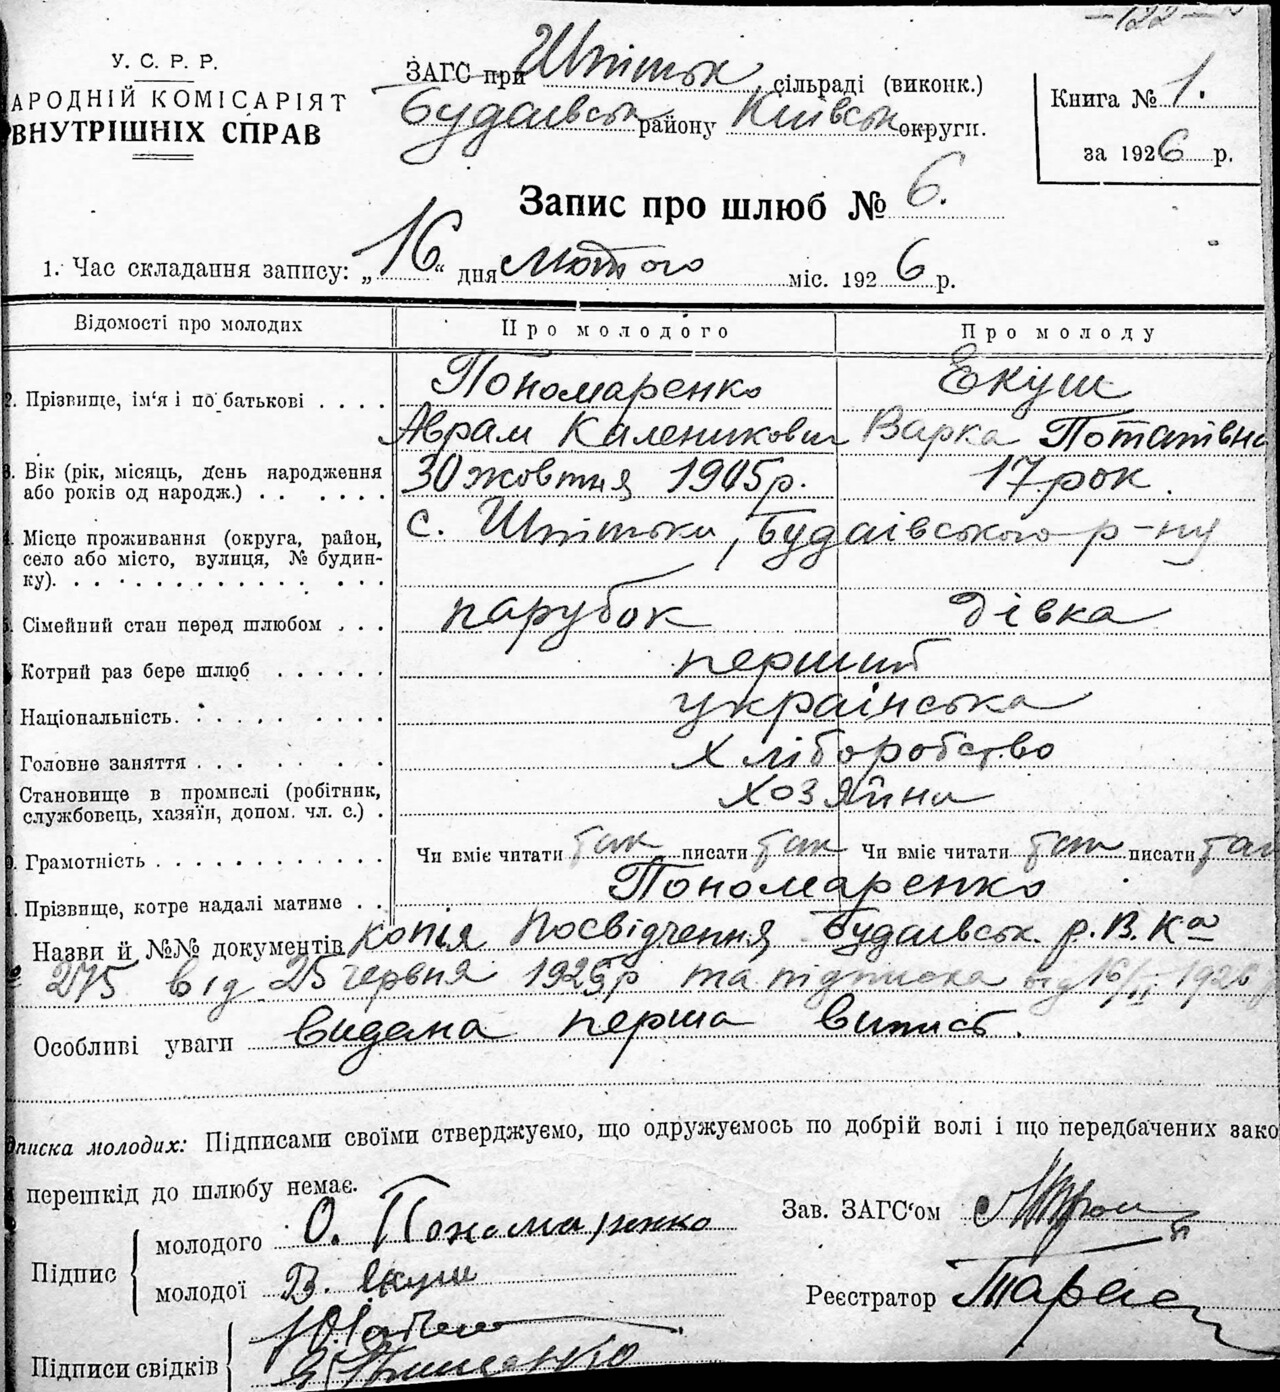 -122-
У. С. Р. Р.
АРОДНІЙ КОМІСАРІЯТ
ВНУТРІШНІХ СПРАВ
ЗАГС при Шпітьк сільраді (виконк.)
Будаєвськ району Київськ округи.
Книга № 1.
за 1926 р.
Запис про шлюб № 6.
1. Час складання запису: „16“ дня лютого міс. 1926 р.
Відомості про молодих
Про молодого
Про молоду
2. Прізвище, ім'я і по батькові . . . .
Пономаренко
Екуш
Аврам Каленикович
Варка Потапівна
3. Вік (рік, місяць, день народження
або років од народж.) . . . . . .
30 жовтня 1905 р.
17 рок.
4. Місце проживання (округа, район,
село або місто, вулиця, № будин-
ку). . . . . . . . . . . . . . .
с. Шпітьки, Будаівського р-ну
5. Сімейний стан перед шлюбом . . .
парубок
дівка
Котрий раз бере шлюб . . . . . .
перший
Національність. . . . . . . . . .
українська
Головне заняття . . . . . . . . .
хліборобство
Становище в промислі (робітник,
службовець, хазяїн, допом. чл. с.) .
хозяйни
Грамотність . . . . . . . . . . . .
Чи вміє читати так писати так
Чи вміє читати так писати так
. Прізвище, котре надалі матиме . .
Пономаренко
Назви й №№ документів копія посвідчення Будаєвськ. р.В.Ка
№ 275 від 25 червня 1925 р та підписка від 16/II 1926 р
Особливі уваги видана перша випись.
дписка молодих: Підписами своїми стверджуємо, що одружуємось по добрій волі і що передбачених зако
перешкід до шлюбу немає.
Підпис
молодого О. Пономаренко
молодої В. Якуш
Зав. ЗАГС'ом
Реєстратор
Підписи свідків